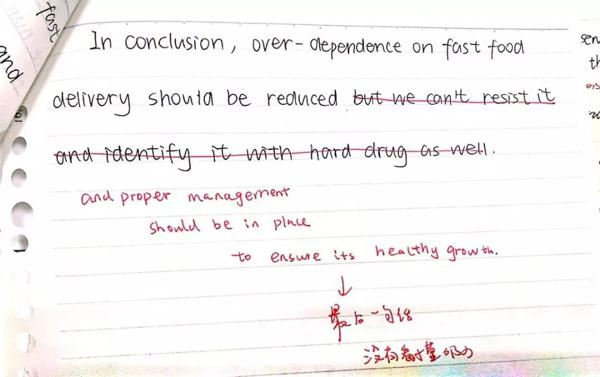 fast
and
In conclusion, over-dependence on fast food
delivery should be reduced but we can't resist it
and identify it with hard drug as well.
and proper management
should be in place
to ensure its healthy growth.
最后一句话
没有
sen
th